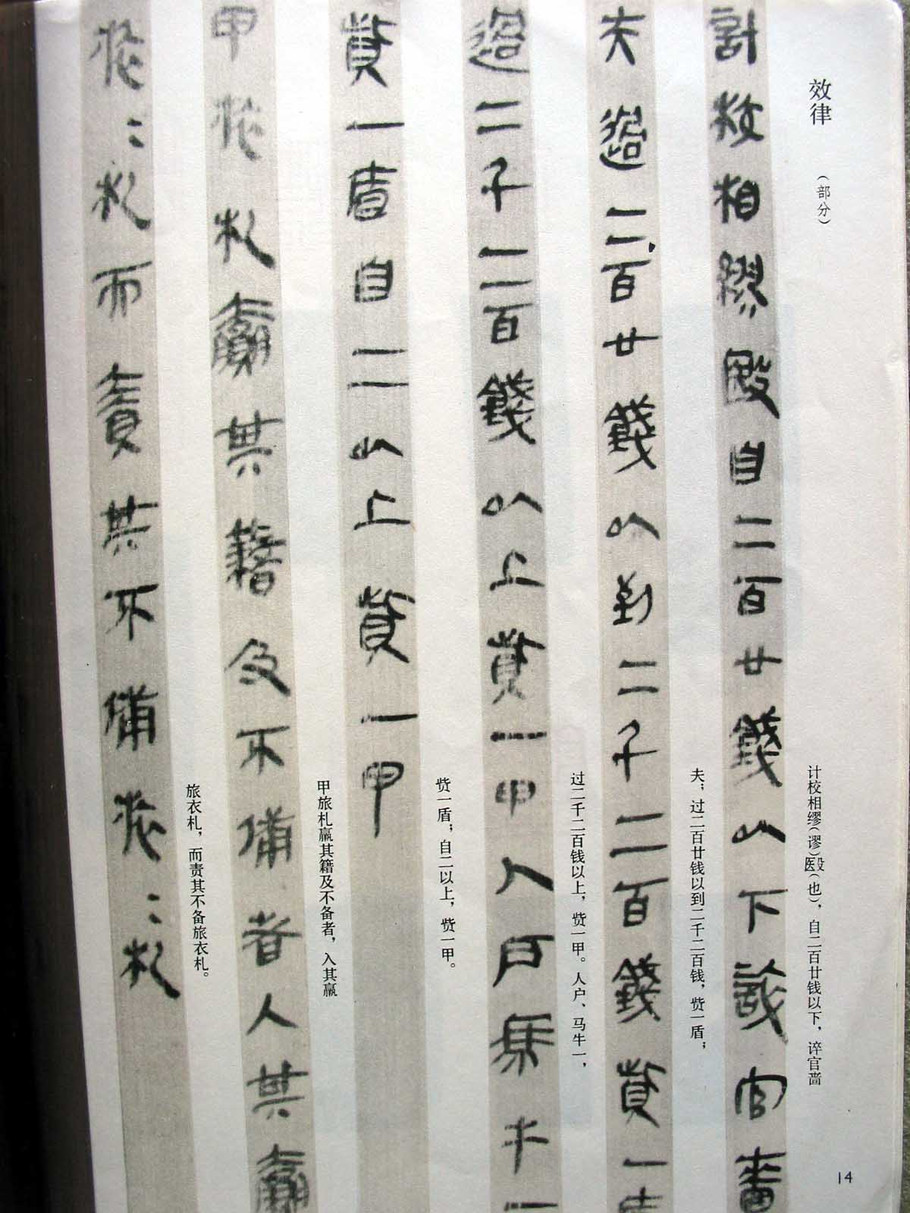 效律
（部分）
計校相繆殹自二百廿錢以下誶官嗇
计校相缪（谬）殹（也），自二百廿钱以下，谇官啬
夫過二百廿錢以到二千二百錢貲一盾
夫；过二百廿钱以到二千二百钱，赀一盾；
過二千二百錢以上貲一甲人戶馬牛一
过二千二百钱以上，赀一甲。人户、马牛一，
貲一盾自二以上貲一甲
赀一盾；自二以上，赀一甲。
甲旅札贏其籍及不備者入其贏
甲旅札赢其籍及不备者，入其赢
旅=札而責其不備旅=札
旅衣札，而责其不备旅衣札。
14